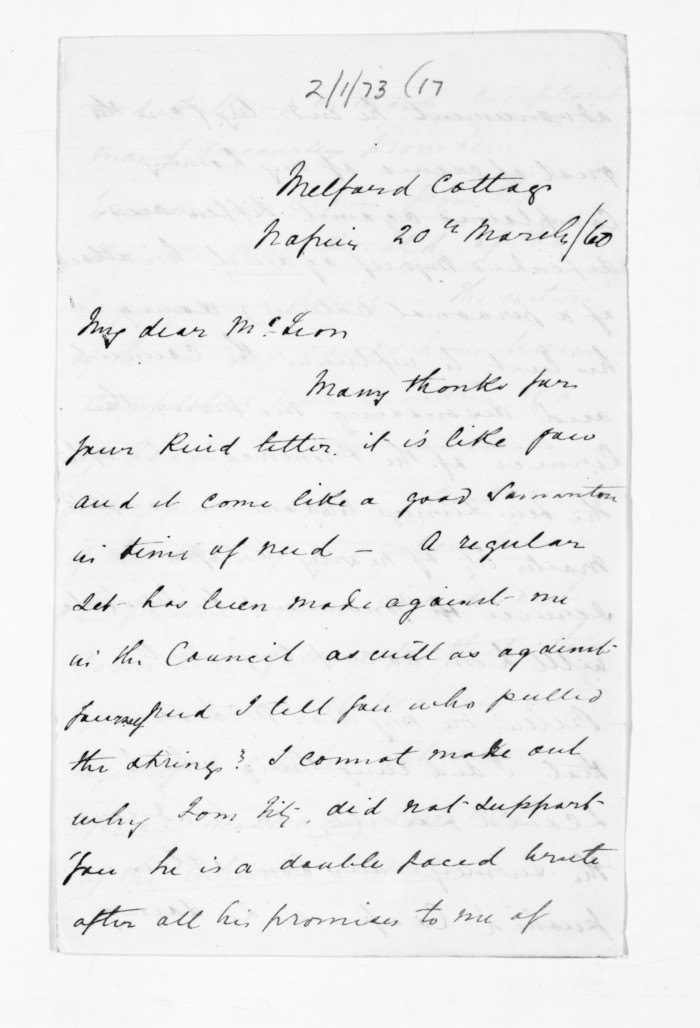 2/1/73 (17
Melford Cottage
Napier 20th March/60
My dear McLean
Many thanks for
your kind letter. it is like you
and it come like a good Samariton
in time of need - A regular
set has been made against me
in the Council as well as against
you need I tell you who pulled
the strings? I cannot make out
why Tom Fitz. did not support
you he is a double faced brute
after all his promises to me of